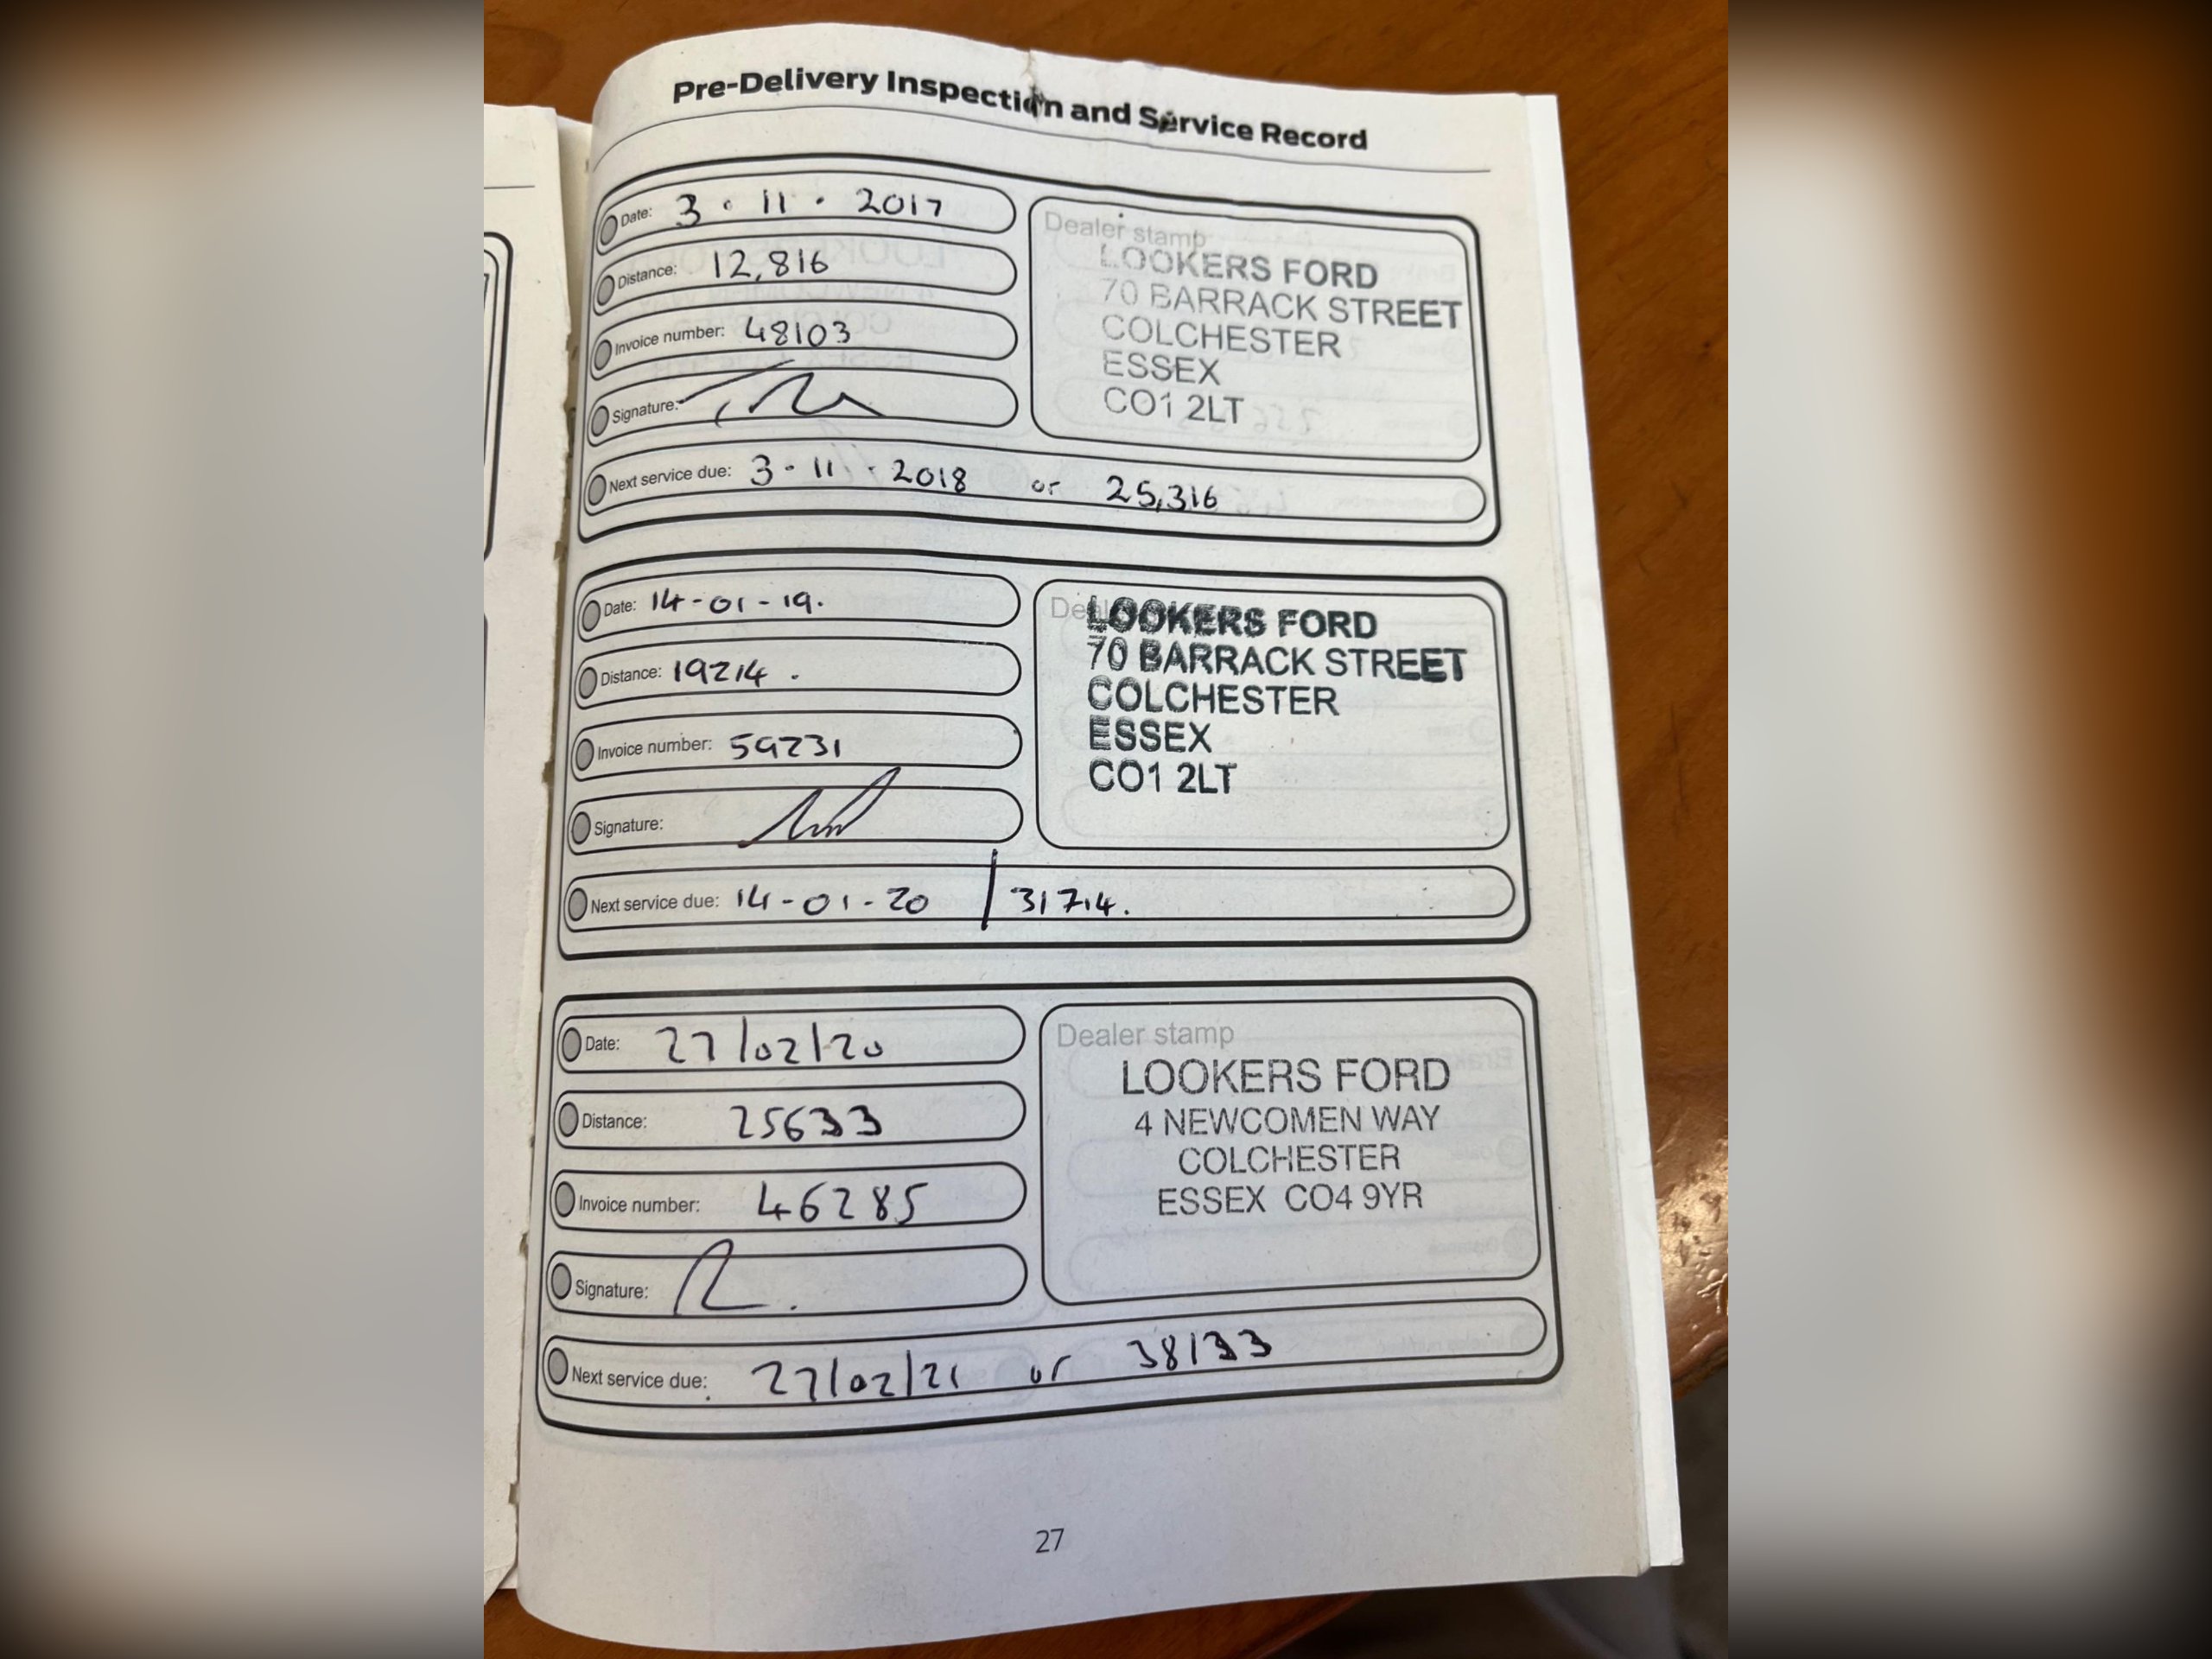 Pre-Delivery Inspection and Service Record
Date: 3 · 11 · 2017
Distance: 12,816
Invoice number: 48103
Signature:
Dealer stamp
LOOKERS FORD
70 BARRACK STREET
COLCHESTER
ESSEX
CO1 2LT
Next service due: 3 · 11 · 2018 or 25,316
Date: 14-01-19.
Distance: 19214.
Invoice number: 59231
Signature:
LOOKERS FORD
70 BARRACK STREET
COLCHESTER
ESSEX
CO1 2LT
Next service due: 14-01-20 / 31714.
Date: 27/02/20
Distance: 25633
Invoice number: 46285
Signature:
Dealer stamp
LOOKERS FORD
4 NEWCOMEN WAY
COLCHESTER
ESSEX CO4 9YR
Next service due: 27/02/21 or 38133
27